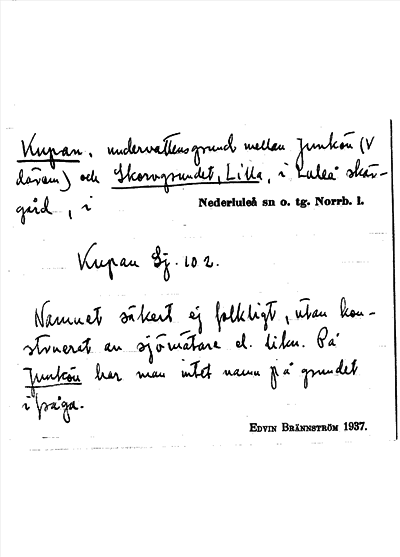 Kupan, undervattensgrund mellan Junkön (V
därom) och Skorvgrundet, Lilla, i Luleå skär-
gård, i Nederluleå sn o. tg. Norrb. l.
Kupan Sj. 102.
Namnet säkert ej folkligt, utan kon-
struerat av sjömätare el. likn. På
Junkön har man intet namn på grundet
ifråga.
Edvin Brännström 1937.